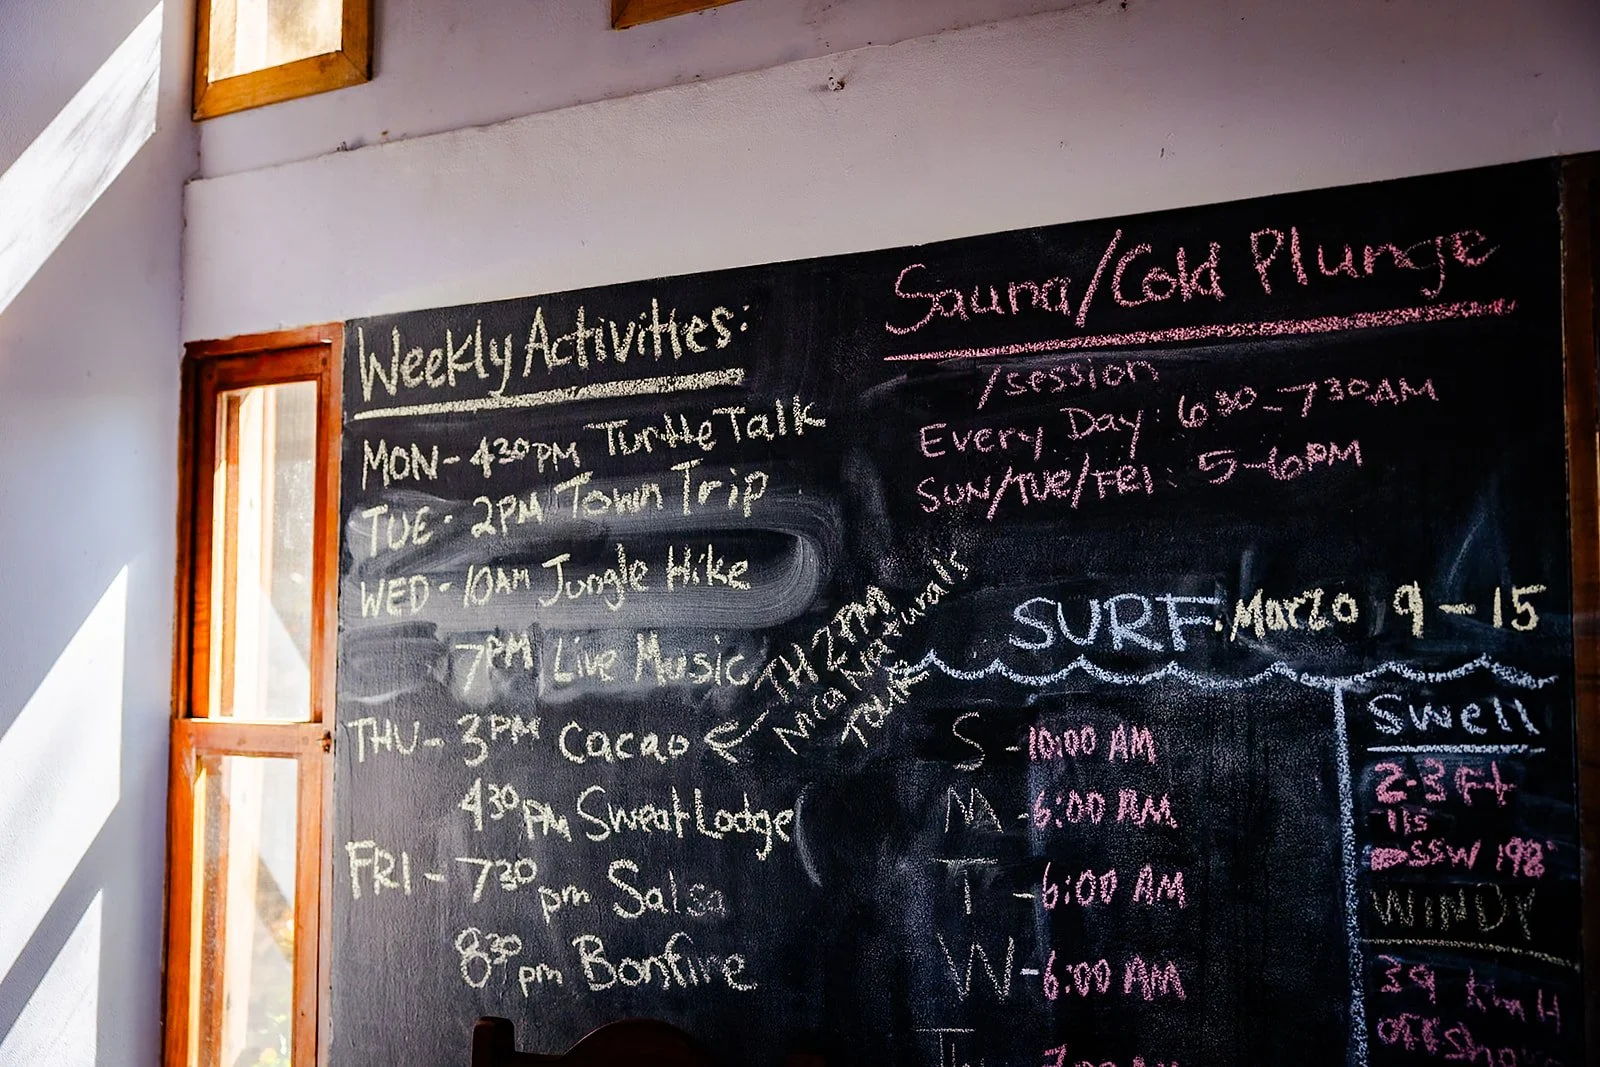 Weekly Activities:
MON - 430PM Turtle Talk
TUE - 2PM Town Trip
WED - 10AM Jungle Hike
7PM Live Music
THU - 3PM Cacao ←
TH 2PM
Nica Naturals
Tour
430PM Sweat Lodge
FRI - 730pm Salsa
830pm Bonfire
Sauna/Cold Plunge
/session
Every Day: 630-730AM
SUN/TUE/FRI: 5-6PM
SURF: Marzo 9-15
S - 10:00 AM
M - 6:00 AM
T - 6:00 AM
W - 6:00 AM
Swell
2-3 Ft
11s
SSW 198°
WINDY
39 km H
OFFshore